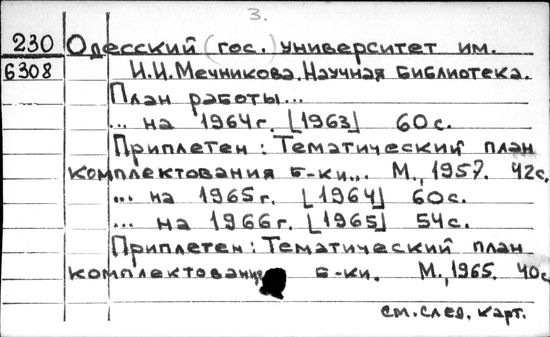 3.
230 Одесский (гос.) университет им.
6308 И.И.Мечникова. Научная библиотека.
План работы...
... на 1964г. [1963] 60с.
Приплетен: Тематический план
комплектования б-ки... М., 1957. 42с.
... на 1965г. [1964] 60с.
... на 1966г. [1965] 54с.
Приплетен: Тематический план
комплектование б-ки. М., 1965. 40с.
см. след. карт.